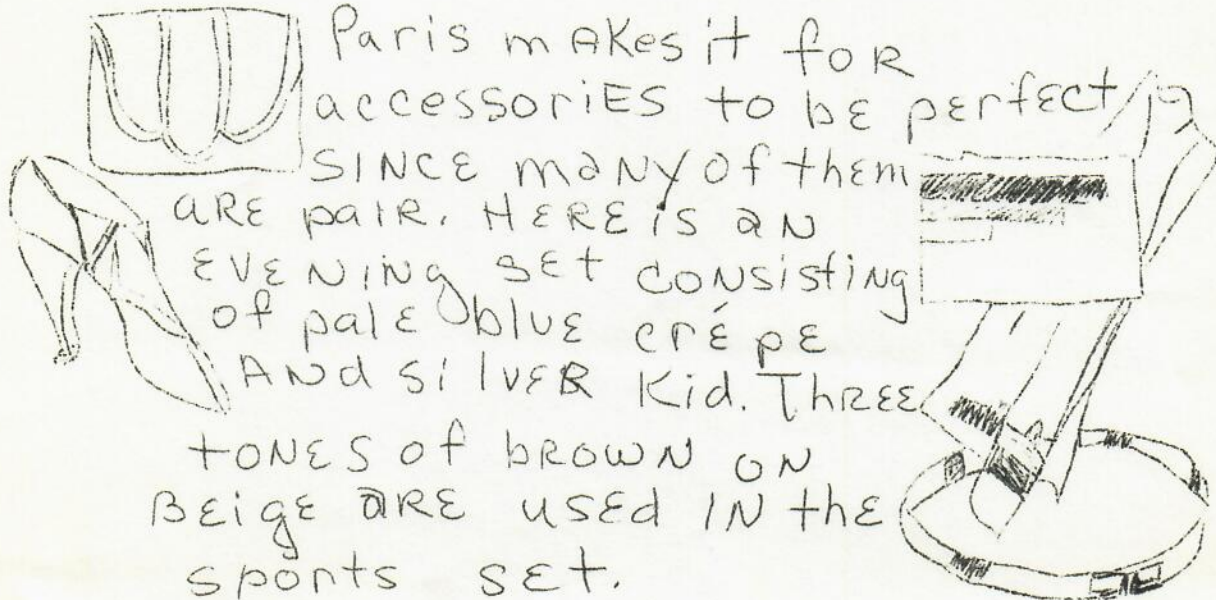 Paris makes it for
accessories to be perfect
since many of them
are pair. Here is an
evening set consisting
of pale blue crépe
And silver Kid. Three
tones of brown on
Beige are used in the
sports set.